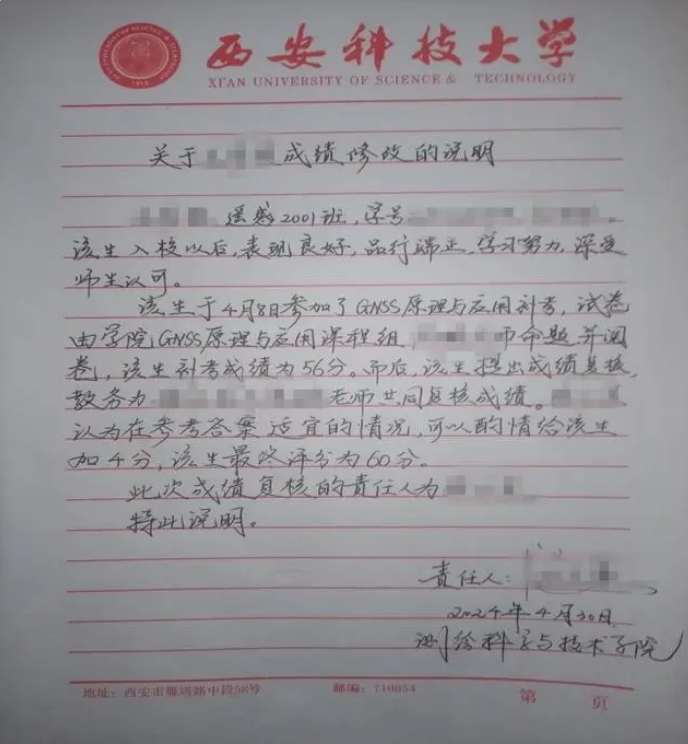 西安科技大学
XI'AN UNIVERSITY OF SCIENCE & TECHNOLOGY
关于 成绩修改的说明
遥感2001班,学号 。
该生入校以后,表现良好,品行端正,学习努力,深受
师生认可。
该生于4月8日参加了GNSS原理与应用补考,试卷
由学院GNSS原理与应用课程组 师命题并阅
卷,该生补考成绩为56分。而后,该生提出成绩复核,
教务为 老师共同复核成绩。
认为在参考答案适宜的情况,可以酌情给该生
加4分,该生最终评分为60分。
此次成绩复核的责任人为
特此说明。
责任人:
2024年4月30日
测绘科学与技术学院
地址:西安市雁塔路中段58号 邮编:710054 第 页